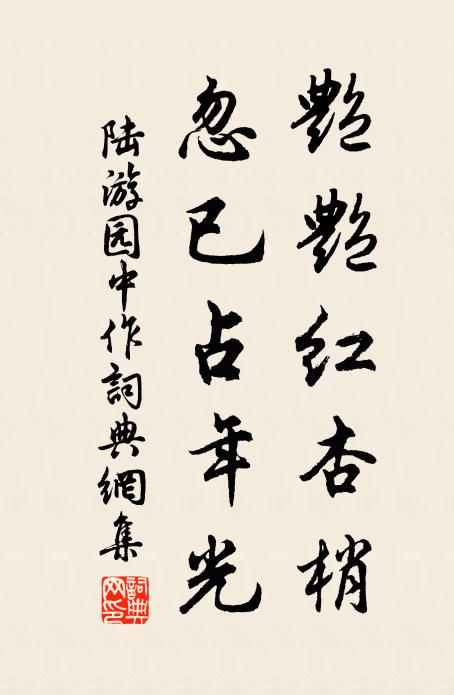 艷艷红杏梢
忽已占年光
陆游园中作詞典網集
詞典网印